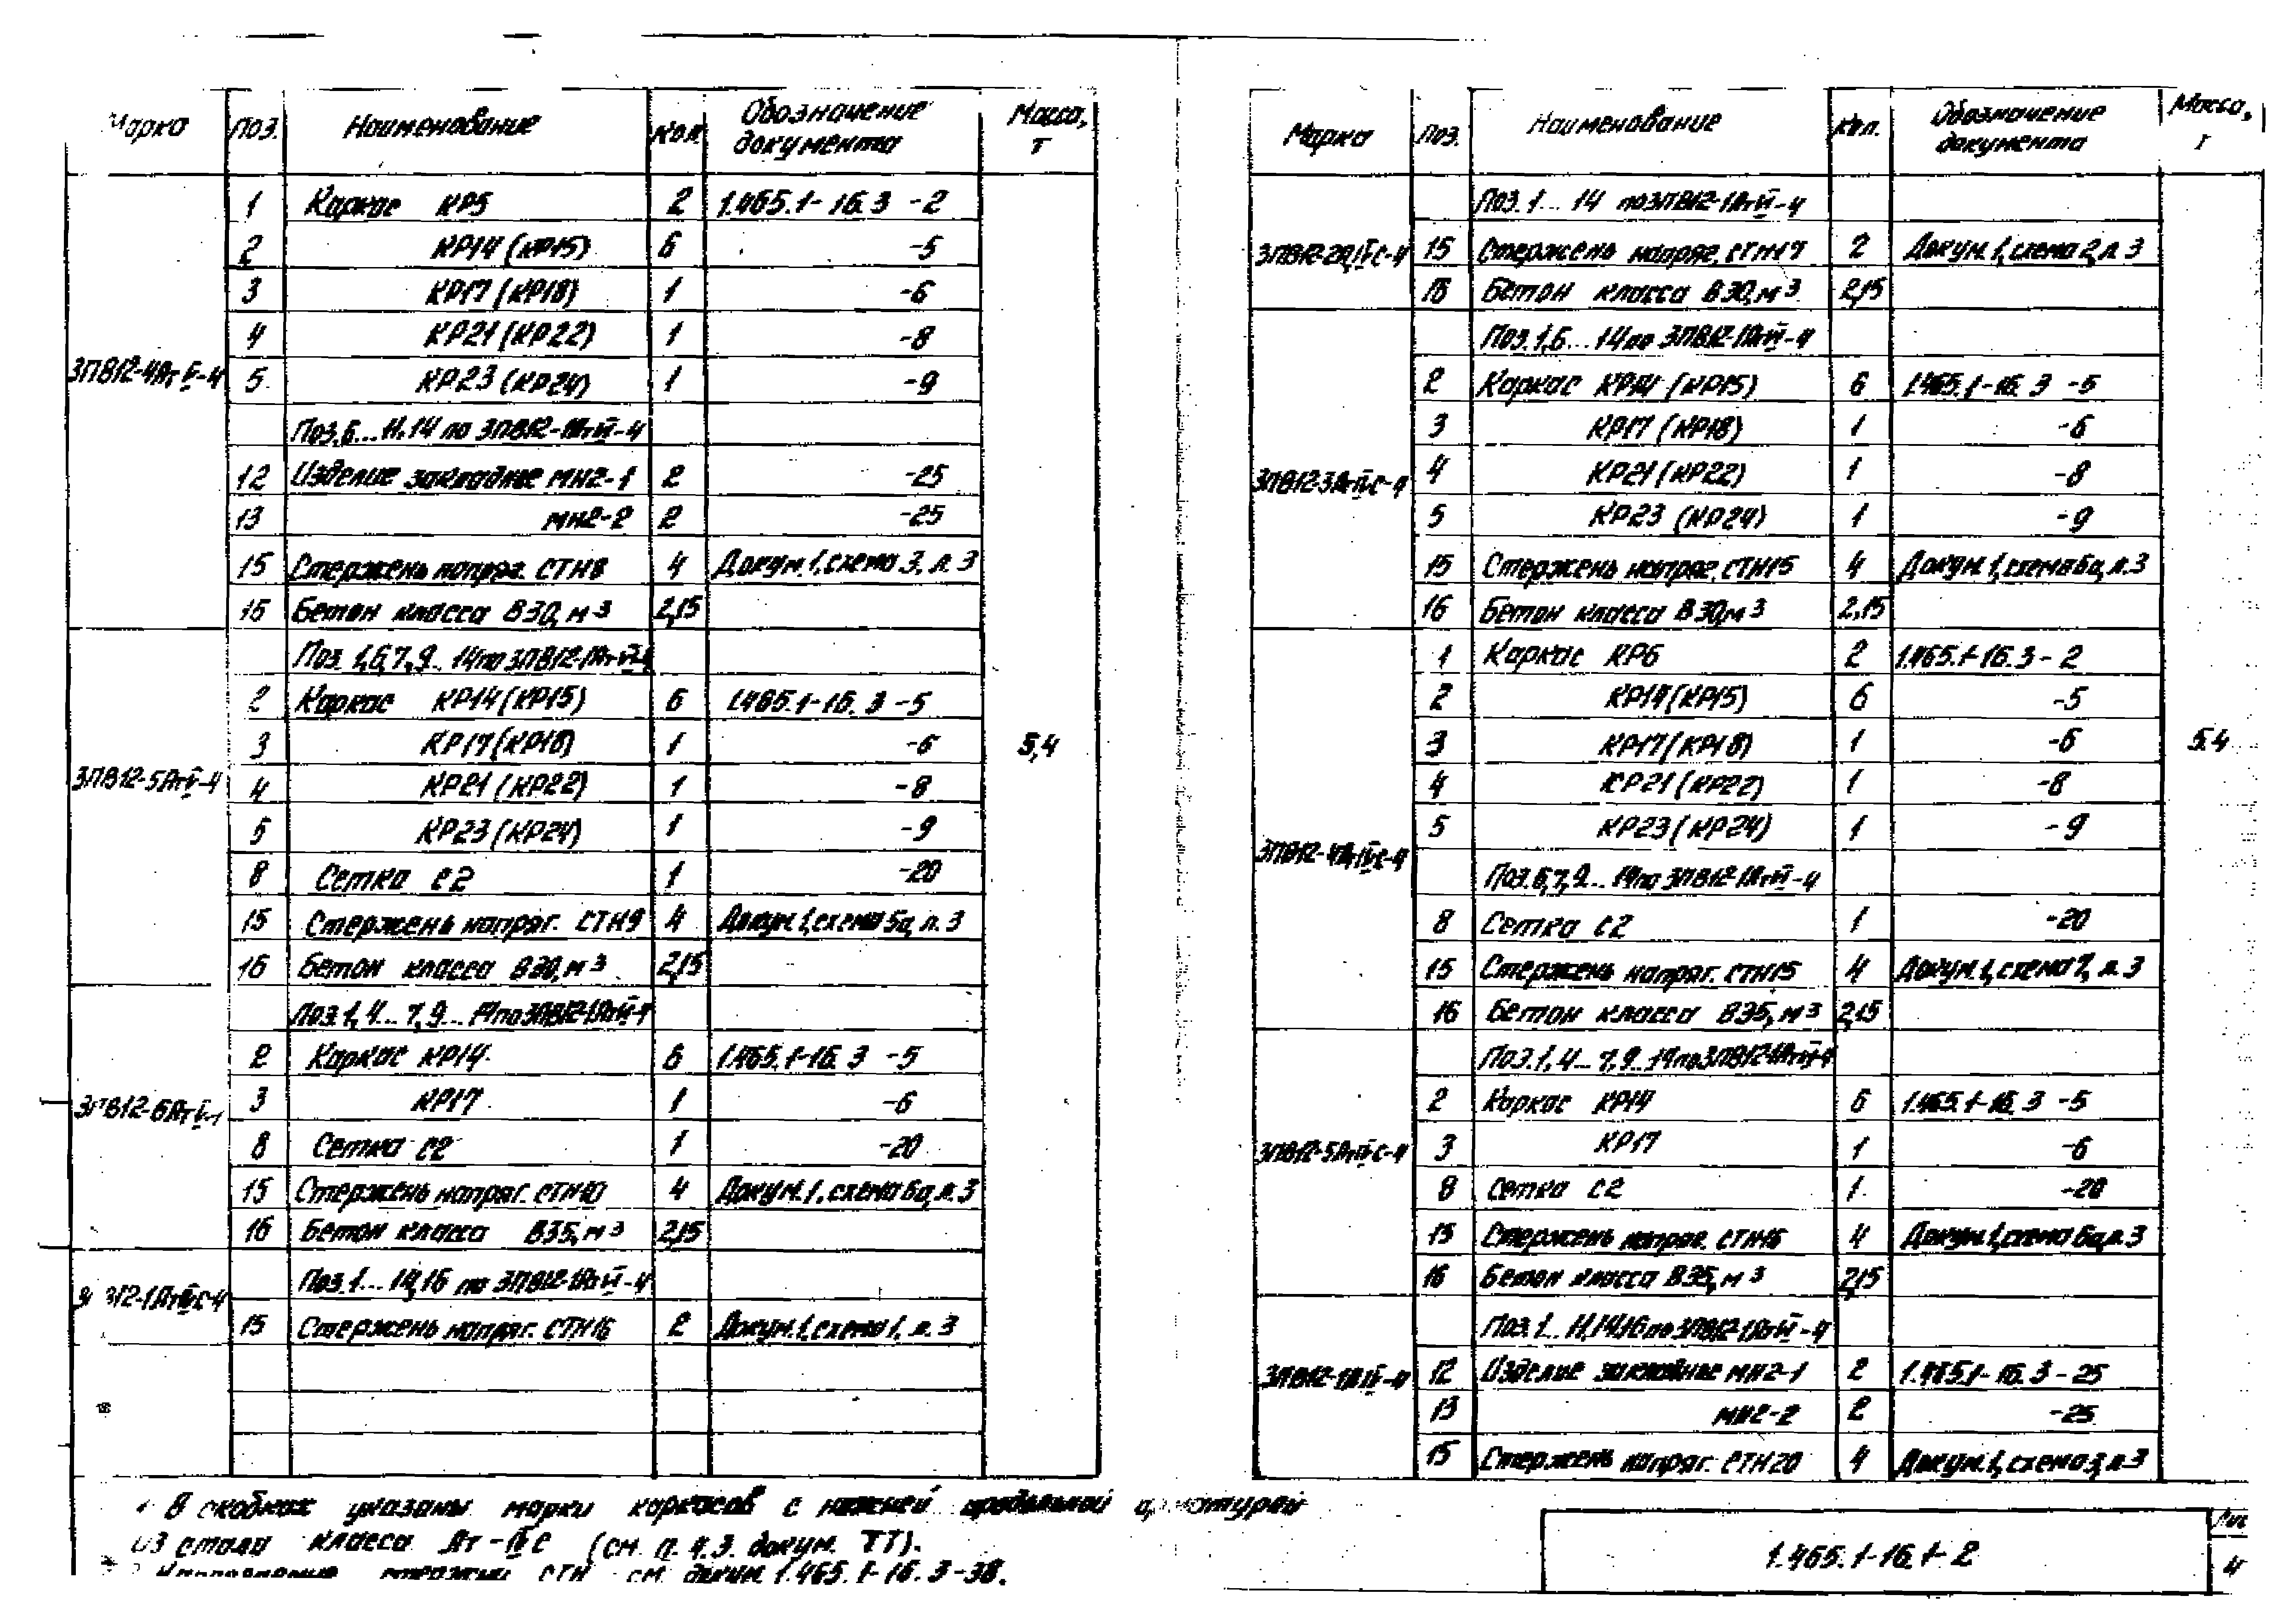 Марка Поз. Наименование Кол. Обозначение документа Масса, т
3ПВ12-4АтV-4
1 Каркас КР5 2 1.465.1-16.3 -2
2 КР14 (КР15) 6 -5
3 КР17 (КР18) 1 -6
4 КР21 (КР22) 1 -8
5 КР23 (КР24) 1 -9
Поз.6...11,14 по 3ПВ12-1АтVI-4
12 Изделие закладное МН2-1 2 -25
13 МН2-2 2 -25
15 Стержень напряг. СТН8 4 Докум.1, схема 3, л.3
16 Бетон класса В30, м3 2,15
3ПВ12-5АтV-4
Поз. 1,6,7,9...14 по 3ПВ12-1АтVI-4
2 Каркас КР14 (КР15) 6 1.465.1-16.3 -5
3 КР17 (КР18) 1 -6
4 КР21 (КР22) 1 -8
5 КР23 (КР24) 1 -9
8 Сетка С2 1 -20
15 Стержень напряг. СТН9 4 Докум.1, схема 5а, л.3
16 Бетон класса В30, м3 2,15
5,4
3ПВ12-6АтV-4
Поз.1, 4...7, 9...14 по 3ПВ12-1АтVI-4
2 Каркас КР14 6 1.465.1-16.3 -5
3 КР17 1 -6
8 Сетка С2 1 -20
15 Стержень напряг. СТН10 4 Докум.1, схема 6а, л.3
16 Бетон класса В35, м3 2,15
Поз.1...14,16 по 3ПВ12-1АтVI-4
15 Стержень напряг. СТН16 2 Докум.1, схема 1, л.3
В скобках указаны марки каркасов с нижней продольной арматурой
из стали класса Ат-IVС (см. п. 4.3. докум. ТТ).
стержни СТН см. докум. 1.465.1-16.3-38.
Марка Поз. Наименование Кол. Обозначение документа Масса, т
3ПВ12-2АтIVС-4
Поз.1...14 по 3ПВ12-1АтVI-4
15 Стержень напряг. СТН17 2 Докум.1, схема 2, л.3
16 Бетон класса В30, м3 2,15
3ПВ12-3АтIVС-4
Поз.1,6...14 по 3ПВ12-1АтVI-4
2 Каркас КР14 (КР15) 6 1.465.1-16.3 -5
3 КР17 (КР18) 1 -6
4 КР21 (КР22) 1 -8
5 КР23 (КР24) 1 -9
15 Стержень напряг. СТН15 4 Докум.1, схема 5а, л.3
16 Бетон класса В30, м3 2,15
3ПВ12-4АтIVС-4
1 Каркас КР6 2 1.465.1-16.3 - 2
2 КР14 (КР15) 6 -5
3 КР17 (КР18) 1 -6
4 КР21 (КР22) 1 -8
5 КР23 (КР24) 1 -9
Поз.6,7,9...14 по 3ПВ12-1АтVI-4
8 Сетка С2 1 -20
15 Стержень напряг. СТН15 4 Докум.1, схема 7, л.3
16 Бетон класса В35, м3 2,15
5.4
3ПВ12-5АтIVС-4
Поз.1, 4...7, 9...14 по 3ПВ12-1АтVI-4
2 Каркас КР14 6 1.465.1-16.3 -5
3 КР17 1 -6
8 Сетка С2 1 -20
15 Стержень напряг. СТН16 4 Докум.1, схема 6а, л.3
16 Бетон класса В35, м3 2,15
3ПВ12-1АIV-4
Поз.1...11,14,16 по 3ПВ12-1АтVI-4
12 Изделие закладное МН2-1 2 1.465.1-16.3 -25
13 МН2-2 2 -25
15 Стержень напряг. СТН20 4 Докум.1, схема 3, л.3
1.465.1-16.1-2
4